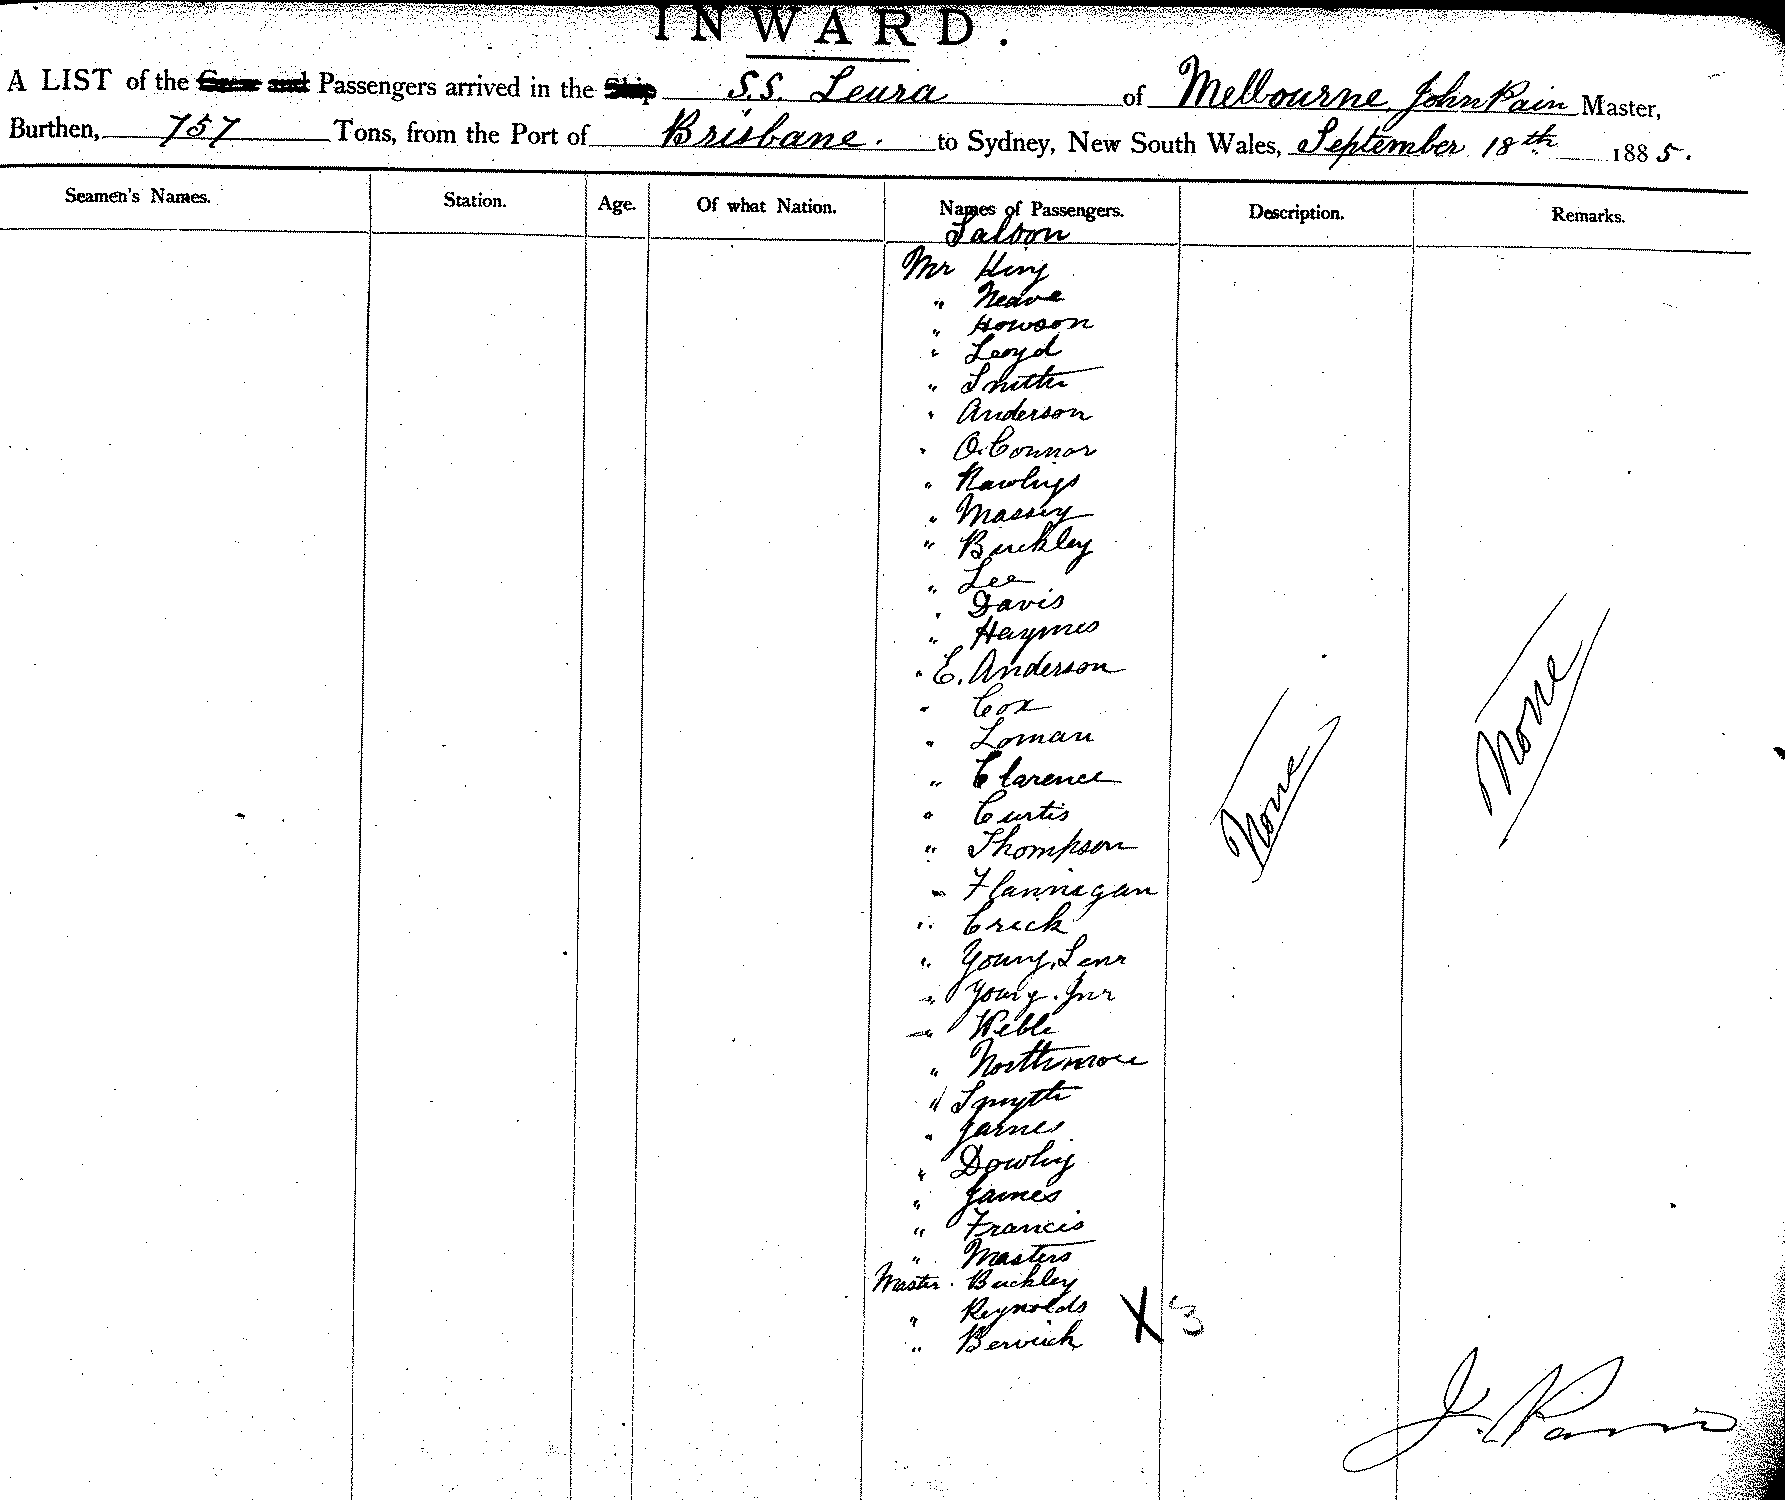 INWARD.
A LIST of the Crew and Passengers arrived in the Ship S.S. Leura of Melbourne, John Pain Master,
Burthen, 757 Tons, from the Port of Brisbane. to Sydney, New South Wales, September 18th 1885.
Seamen's Names. Station. Age. Of what Nation. Names of Passengers. Description. Remarks.
Saloon
Mr King
" Neave
" Howson
" Loyd
" Smith
" Anderson
" O'Connor
" Rawlings
" Massey
" Buckley
" Lee
" Davis
" Haymes
" E. Anderson
" Cox
" Loman
" Clarence
" Curtis
" Thompson
" Flannagan
" Creek
" Young, Senr
" Young. Jnr
" Webb
" Northmore
" Smyth
" James
" Dowling
" James
" Francis
" Masters
Master. Buckley
" Reynolds
" Berwick X 3
None
None
J. Pain